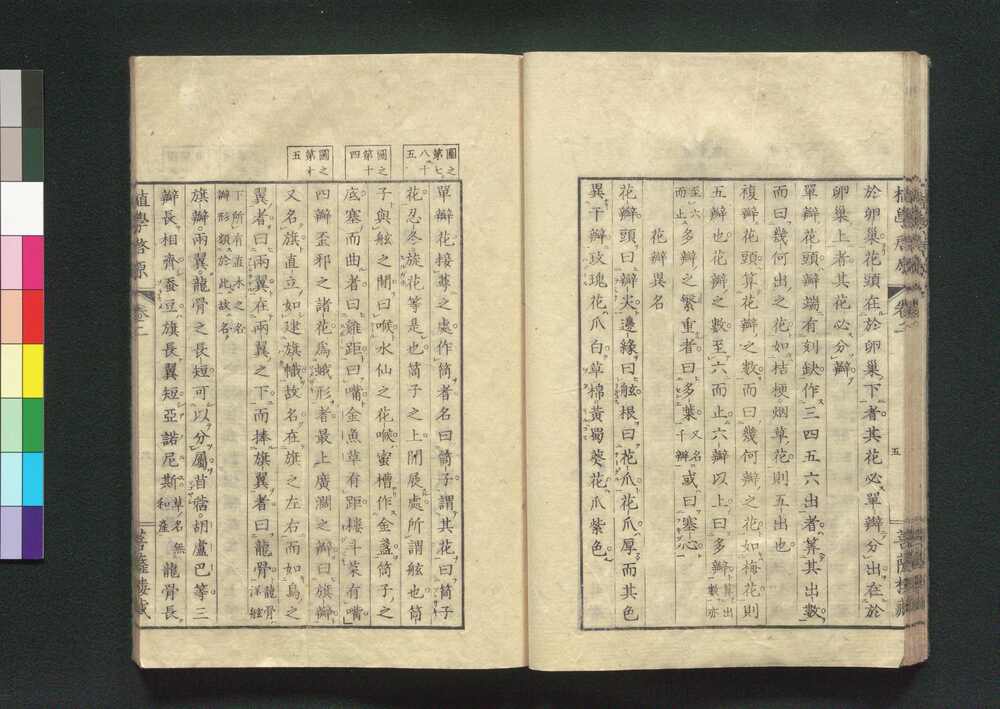 於卵巢花頭在於卵巢下者其花必單瓣分出在於
卵巢上者其花必分瓣
單瓣花頭瓣端有刻缺作三四五六出者算其出數
而曰幾何出之花如桔梗烟草花則五出也
複瓣花頭算花瓣之數而曰幾何瓣之花如梅花則
五瓣也花瓣之數至六而止六瓣以上曰多瓣算出數亦
至六而止多瓣之繁重者曰多葉又名千瓣或曰塞心
花瓣異名
花瓣頭曰瓣尖邊緣曰舷根曰花爪花爪厚而其色
異于瓣玫瑰花爪白草棉黃蜀葵花爪紫色
五
植學啓原 卷二
菩薩樓藏
圖之第七八十五
單瓣花接蕚之處作筒者名曰筒子謂其花曰筒子
花忍冬族花等是也筒子之上開展處所謂舷也筒
子與舷之間曰喉水仙之花喉蜜槽作金盞筒子之
圖之第十四
底塞而曲者曰雞距曰嘴金魚草有距樓斗菜有嘴
四瓣歪邪之諸花爲蛾形者最上廣濶之瓣曰旗瓣
圖之第十五
又名旗直立如建旗幟故名在旗之左右而如鳥之
翼者曰兩翼在兩翼之下而捧旗翼者曰龍骨龍骨洋舷
下所有直木之名瓣形類於此故名
旗瓣兩翼龍骨之長短可以分屬苜蓿胡盧巴等三
瓣長相齊蚕豆旗長翼短亞諾尼斯草名無和產龍骨長
植學啓原 卷二
菩薩樓藏